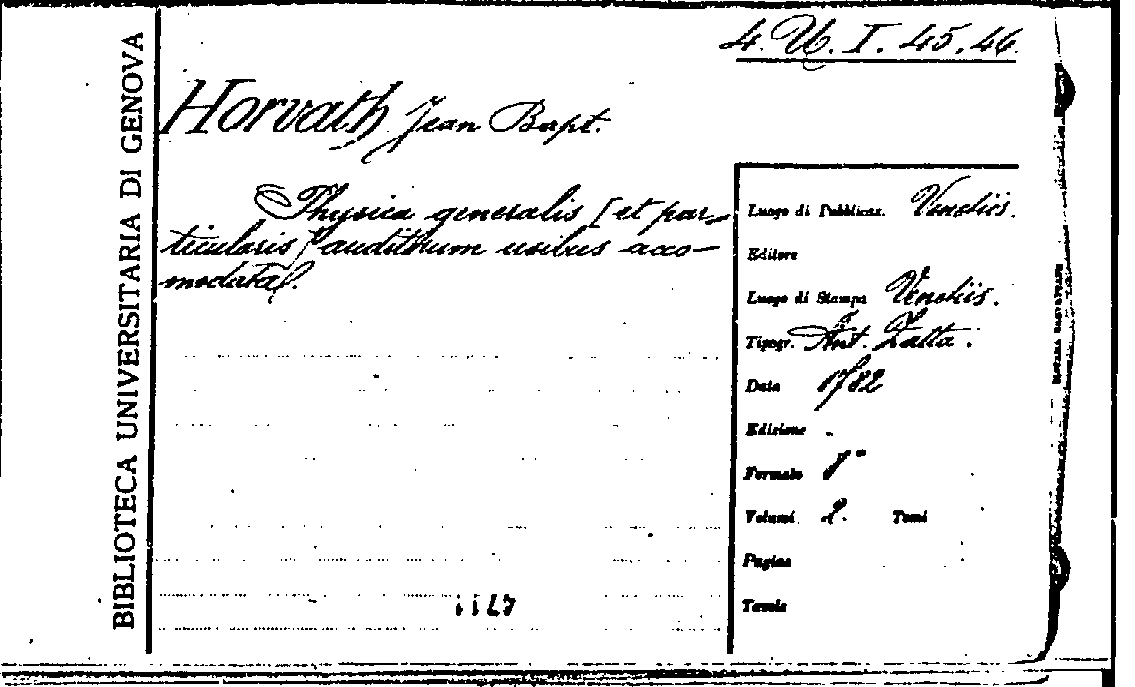 4. U. I. 45.46.
BIBLIOTECA UNIVERSITARIA DI GENOVA
Horvath Jean Bapt.
Physica generalis [et par-
ticularis] auditorum usibus acco-
modata].
Luogo di Pubblicaz. Venetiis.
Editore
Luogo di Stampa Venetiis.
Tipogr. Ant. Zatta.
Data 1782
Edizione
Formato 8°
Volumi 2. Tomi
Pagine
Tavole